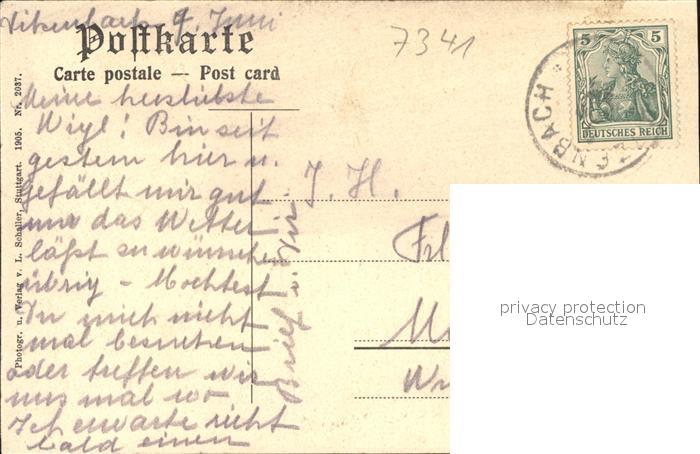 9. Juni
Postkarte
Carte postale — Post card
7341
5 5
DEUTSCHES REICH
NBACH
Photogr. u. Verlag v. L. Schaller, Stuttgart. 1905. Nr. 2037.
Meine herzliebste
Bin seit
gestern hier u.
gefällt mir gut
nur das Wetter
läßt zu wünschen
übrig - Möchtest
Du mich nicht
mal besuchen
oder treffen wir
uns mal wo
Ich erwarte recht
bald einen
Brief v. Dir
J. H.
Frl
privacy protection
Datenschutz